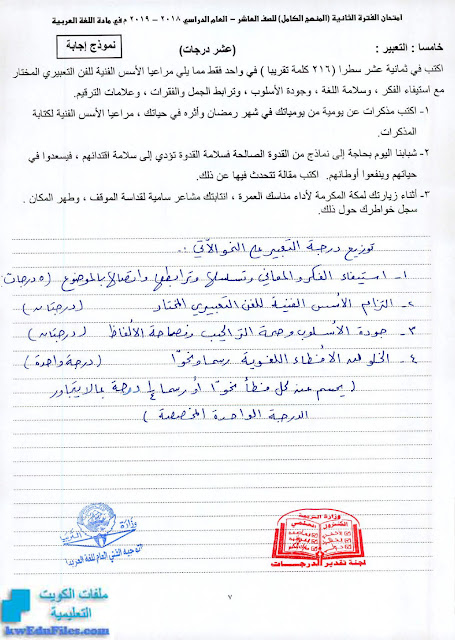 امتحان الفترة الثانية (المنهج الكامل) للصف العاشر – العام الدراسي ٢٠١٨ – ٢٠١٩ م في مادة اللغة العربية
خامسا : التعبير :
(عشر درجات)
نموذج إجابة
اكتب في ثمانية عشر سطرا ( ٢١٦ كلمة تقريبا ) في واحد فقط مما يلي مراعيا الأسس الفنية للفن التعبيري المختار
مع استيفاء الفكر ، وسلامة اللغة ، وجودة الأسلوب ، وترابط الجمل والفقرات ، وعلامات الترقيم.
١- اكتب مذكرات عن يومية من يومياتك في شهر رمضان وأثره في حياتك ، مراعيا الأسس الفنية لكتابة
المذكرات.
٢- شبابنا اليوم بحاجة إلى نماذج من القدوة الصالحة فسلامة القدوة تؤدي إلى سلامة اقتدائهم ، فيسعدوا في
حياتهم وينفعوا أوطانهم. اكتب مقالة تتحدث فيها عن ذلك.
٣- أثناء زيارتك لمكة المكرمة لأداء مناسك العمرة ، انتابتك مشاعر سامية لقداسة الموقف ، وطهر المكان .
سجل خواطرك حول ذلك.
توزيع درجة التعبير على النحو الآتي :
١- استيفاء الفكر والمعاني وتسلسلها وترابطها واتصالها بالموضوع (٥ درجات)
٢- التزام الأسس الفنية للفن التعبيري المختار ( درجتان )
٣- جودة الأسلوب وصحة التراكيب وفصاحة الألفاظ ( درجتان )
٤- الخلو من الأخطاء اللغوية رسما ونحوا ( درجة واحدة )
( يخصم عن كل خطأ نحوا أو رسما درجة بما لا يتجاوز
الدرجة الواحدة المخصصة )
وزارة التربية
الكنترول
لجنة تقدير الدرجات
وزارة التربية
التوجيه الفني العام للغة العربية
٧
ملفات الكويت
التعليمية
kwEduFiles.com